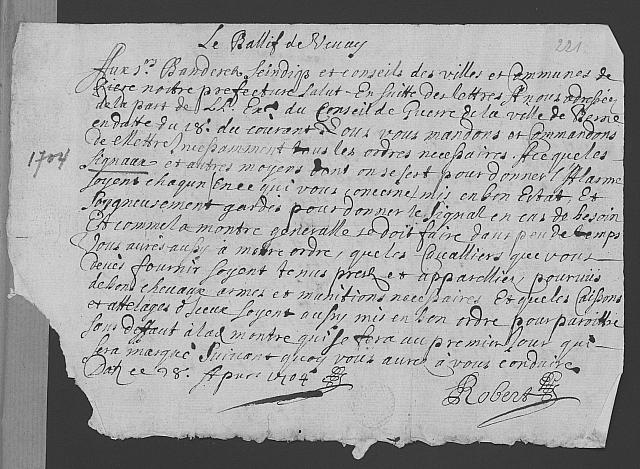 Le Ballif de Vevay
221
Aux Srs Banderets Sindiqs et conseils des villes et Communes de
riere nottre prefecture Salut. En suitte des lettres A nous adressées
de la part de LL. Exc. du Conseil de Guerre de la ville de Berne
en datte du 18e du courant Nous vous mandons et Commandons
1704
de Mettre necessamment tous les ordres necessaires. A ce que les
Signaux et autres moyens dont on se sert pour donner l'Alarme
soyent chaqun En ce qui vous concerne mis en bon Estat, Et
soygneusement gardés pour donner le signal en cas de besoin
Et comme la montre generalle se doit faire dans peu de temps
Vous aurés aussy à mettre ordre, que les Cavalliers que vous
devés fournir soyent tenus prests et appareillés, pourvus
de bons chevaux armes et munitions necessaires Et que les Caissons
et attelages d'iceux soyent aussy mis en bon ordre pour paroittre
sans deffaut à lad. montre qui se fera au premier Jour qui
sera marqué Suivant quoy vous aures à vous conduire
Dat. ce 28e Apvril 1704
Robert